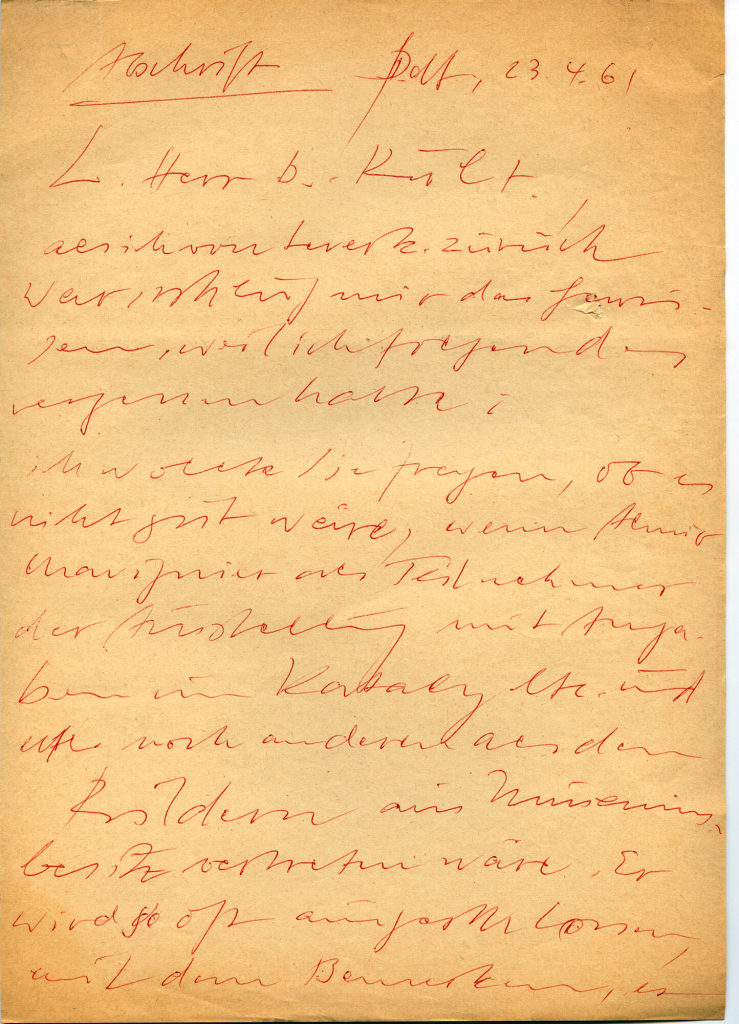 Abschrift Ddf, 23.4.61
L. Herr D. Kült!
als ich von Leverk. zurück
war, schlug mir das Gewis-
sen, weil ich folgendes
vergessen hatte:
ich wollte Sie fragen, ob es
nicht gut wäre, wenn Almir
Mavignier als Teilnehmer
der Ausstellung mit Anga-
ben im Katalog etc. und
noch anderen als den
Bildern aus Museums-
besitz vertreten wäre. Er
wird so oft ausgeschlossen,
mit dem Bemerken, es